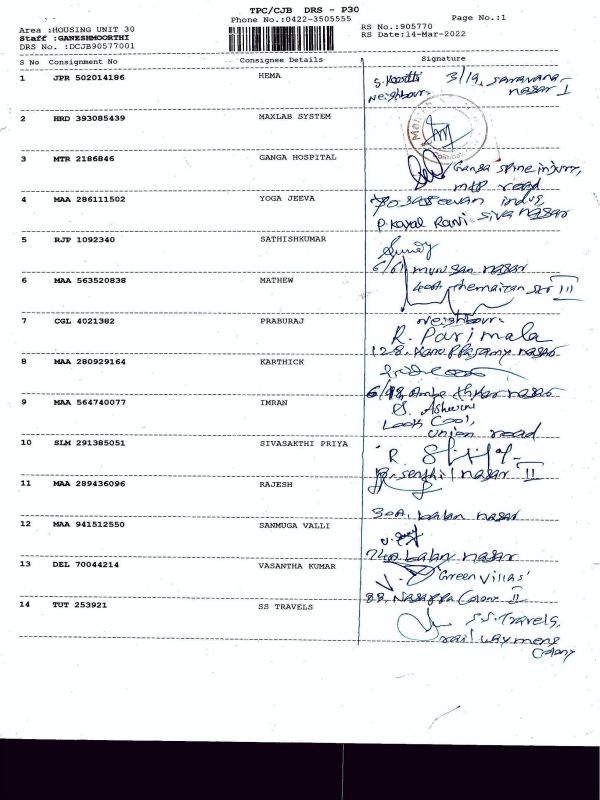 TPC/CJB DRS - P30
Phone No.:0422-3505555
Page No.:1
Area :HOUSING UNIT 30
RS No.:905770
Staff :GANESHMOORTHI
RS Date:14-Mar-2022
DRS No. :DCJB90577001
S No Consignment No Consignee Details Signature
1 JPR 502014186 HEMA
3/19, saravana
Neighbour nagar I
2 HRD 393085439 MAXLAB SYSTEM
3 MTR 2186846 GANGA HOSPITAL
Ganga spine injury,
mtp road
4 MAA 286111502 YOGA JEEVA
P. Kayal Rani siva nagar
5 RJP 1092340 SATHISHKUMAR
6/61 murugan nagar
6 MAA 563520838 MATHEW
III
7 CGL 4021382 PRABURAJ
Neighbour
R. Parimala
8 MAA 280929164 KARTHICK
9 MAA 564740077 IMRAN
S. Ashwini
Look Cool,
union road
10 SLM 291385051 SIVASAKTHI PRIYA
R
senthil nagar II
11 MAA 289436096 RAJESH
30A, balan nagar
12 MAA 941512550 SANMUGA VALLI
74A balan nagar
13 DEL 70044214 VASANTHA KUMAR
'Green Villas'
88, Nagappa Colony II
14 TUT 253921 SS TRAVELS
S.S. Travels,
railwaymens
Colony